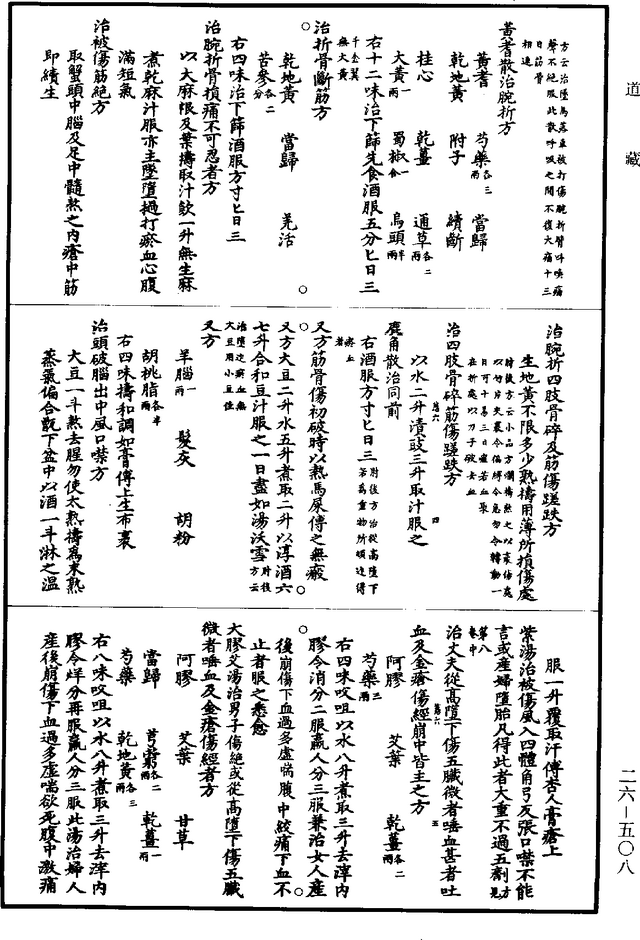 道藏
方云治墮馬落車被打傷腕折臂呌喚痛
聲不絕服此散呼吸之間不復大痛十三
日筋骨
相連
黃耆散治腕折方
黃耆 芍藥各三兩 當歸
乾地黃 附子 續斷
桂心 乾薑 通草各二兩
大黃一兩 蜀椒一合 烏頭半兩
右十二味治下篩先食酒服五分匕日三
千金翼
無大黃
治折骨斷筋方
乾地黃 當歸 羗活
苦參各二分
右四味治下篩酒服方寸匕日三
治腕折骨損痛不可忍者方
以大麻根及葉擣取汁飲一升無生麻
煮乾麻汁服亦主墜墮撾打瘀血心腹
滿短氣
治被傷筋絕方
取蟹頭中腦及足中髓熬之內瘡中筋
即續生
治腕折四肢骨碎及筋傷蹉跌方
生地黃不限多少熟擣用薄所損傷處
肘後方云小品方爛擣熬之以裹傷處
以竹片夾裹令徧縛令急勿令轉動一
日可十易三日瘥若血聚
在折處以刀子破去血
治四肢骨碎筋傷蹉跌方
以水二升漬豉三升取汁服之
鹿角散治同前
右酒服方寸匕日三肘後方治從高墮下
若為重物所頓迮得
瘀血
者
又方筋骨傷初破時以熱馬屎傅之無瘢
又方大豆二升水五升煮取二升以淳酒六
七升合和豆汁服之一日盡如湯沃雪肘後方云
治墮迮瘀血無
大豆用小豆佳
又方
羊腦一兩 髮灰 胡粉
胡桃脂各半兩
右四味擣和調如膏傅上生布裹
治頭破腦出中風口噤方
大豆一斗熬去腥勿使太熟擣為末熟
蒸氣徧合甑下盆中以酒一斗淋之溫
服一升覆取汗傅杏人膏瘡上
紫湯治被傷風入四體角弓反張口噤不能
言或產婦墮胎凡得此者大重不過五劑方見
第八
卷中
治丈夫從高墮下傷五臟微者唾血甚者吐
血及金瘡傷經崩中皆主之方
阿膠 艾葉 乾薑各二兩
芍藥三兩
右四味㕮咀以水八升煮取三升去滓內
膠令消分二服羸人分三服兼治女人產
後崩傷下血過多虛喘腹中絞痛下血不
止者服之悉愈
大膠艾湯治男子傷絕或從高墮下傷五臟
微者唾血及金瘡傷經者方
阿膠 艾葉 甘草
當歸 芎藭各二兩 乾薑一兩
芍藥 乾地黃各三兩
右八味㕮咀以水八升煮取三升去滓內
膠令烊分再服羸人分三服此湯治婦人
產後崩傷下血過多虛喘欲死腹中激痛
二六—五〇八